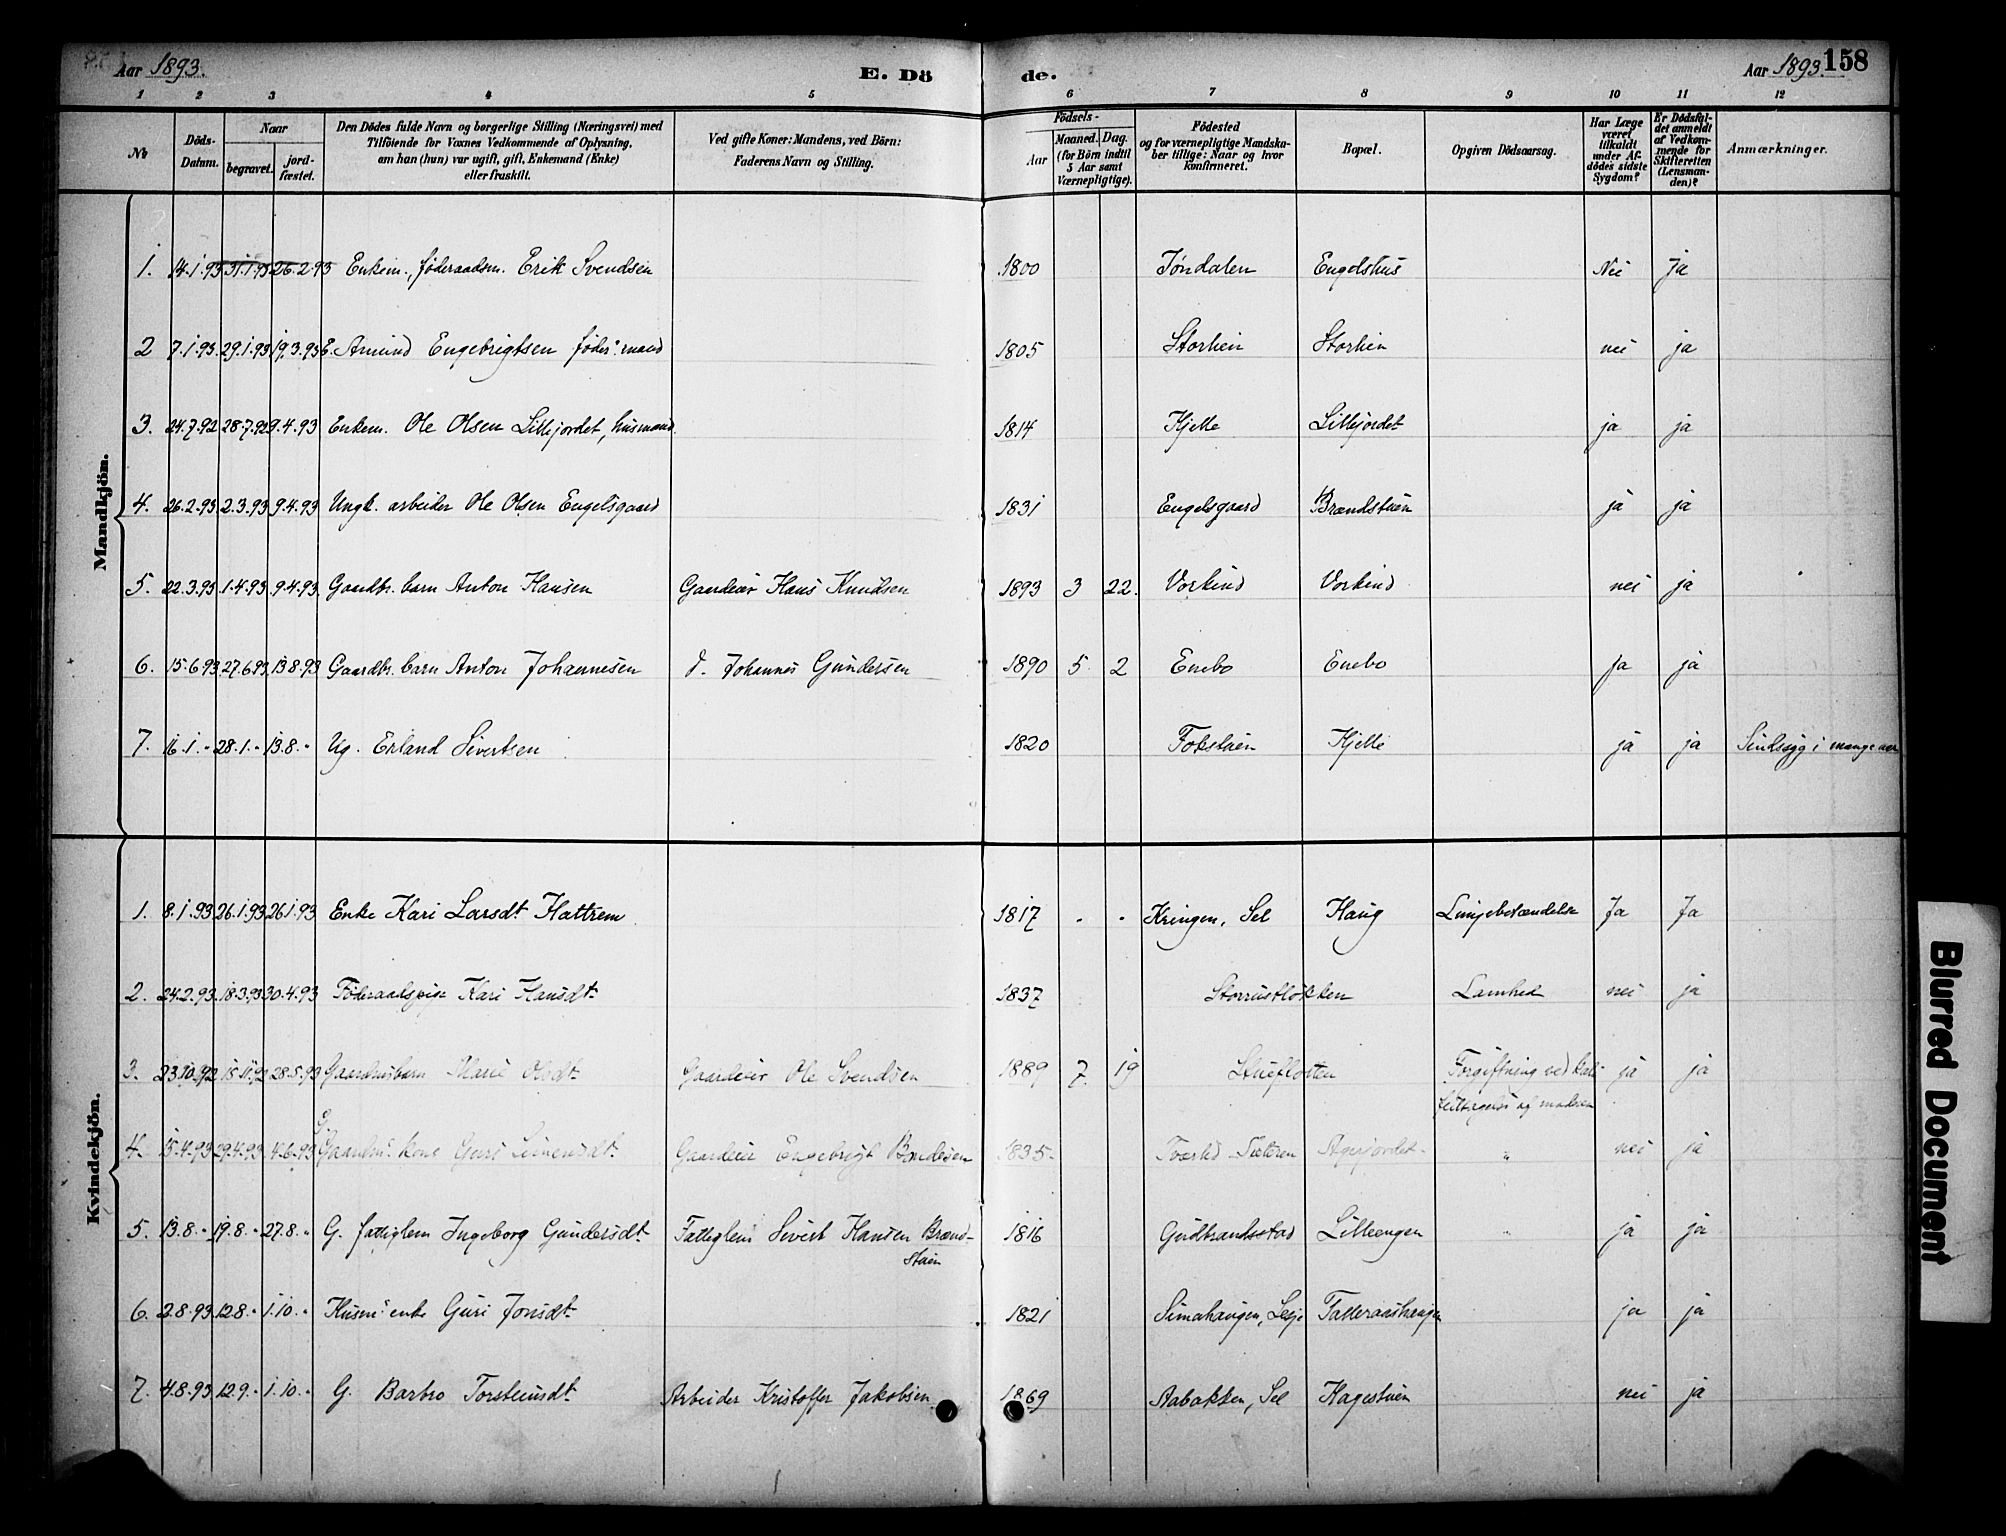 Aar 1893.
E. Dö
de.
Aar 1893.
158
1 2 3 4 5 6 7 8 9 10 11 12
No
Döds-
Datum.
Naar
begravet.
jord-
fæstet.
Den Dödes fulde Navn og borgerlige Stilling (Næringsvei) med
Tilföiende for Voxnes Vedkommende af Oplysning,
om han (hun) var ugift, gift, Enkemand (Enke)
eller fraskilt.
Ved gifte Koner: Mandens, ved Börn:
Faderens Navn og Stilling.
Födsels-
Aar
Maaned.
Dag.
(for Börn indtil
5 Aar samt
Værnepligtige).
Födested
og for værnepligtige Mandska-
ber tillige: Naar og hvor
konfirmeret.
Bopæl.
Opgiven Dödsaarsag.
Har Læge
været
tilkaldt
under Af-
dödes sidste
Sygdom?
Er Dödsfal-
det anmeldt
af Vedkom-
mende for
Skifteretten
(Lensman-
den)?
Anmærkninger.
Mandkjön.
1. 14.1.93 31.1.93 26.2.93 Enkem., føderaadsm. Erik Svendsen 1800 Jøndalen Engelshus Nei Ja
2 7.1.93 29.1.93 19.3.93 E. Amund Engebrigtsen føders mand 1805 Storlien Storlien nei ja
3. 24.7.92 28.7.92 9.4.93 Enkem. Ole Olsen Lillejordet, husmand. 1814 Kjelle Lillejordet ja ja
4. 26.2.93 2.3.93 9.4.93 Ungk. arbeider Ole Olsen Engelsgaard 1831 Engelsgaard Brændstuen ja ja
5. 22.3.93 1.4.93 9.4.93 Gaardbr. barn Anton Hansen Gaardeier Hans Knudsen 1893 3 22. Vorkind Vorkind nei ja
6. 15.6.93 27.6.93 13.8.93 Gaardbr. barn Anton Johannesen d. Johannes Gundersen 1890 5. 2 Enebo Enebo Ja ja
7. 16.1." 28.1." 13.8." Ug. Erland Sivertsen 1820 Fokstuen Kjelle ja ja Sindssyg i mange aar
Kvindekjön.
1. 8.1.93 26.1.93 26.1.93 Enke Kari Larsdt Hattrem 1817 . . Kringen, Sel Haug Lungebetændelse Ja Ja
2. 24.2.93 18.3.93 30.4.93 Føderaadspige Kari Hansdt. 1837 Storrustløkken Lamhed nei ja
3. 23.10.92 15.11.92 28.5.93 Gaardmsbarn Marie Olsdt. Gaardeier Ole Svendsen 1889 7. 19 Stueflotten Forgiftning ved
af moderen ja ja
4. 15.4.93 29.4.93 4.6.93 G. Gaardm.s kone Guri Simensdt. Gaardeier Engebrigt Bendiksen 1835. Tværlid Sæteren " nei ja
5. 13.8." 19.8." 27.8." G. fattiglem Ingeborg Gundersdt. Fattiglem Sivert Hansen Brænd-
stuen 1816 Gudbrandsstad Lilleengen " ja ja
6. 2.8.93 12.8." 1.10." Husm.s enke Guri Jonsdt. 1821 Simahaugen, Lesje Talleraashaugen ja ja
7. 4.8.93 12.9." 1.10." G. Barbro Torsteinsdt. Arbeider Kristoffer Jakobsen 1869 Aabakken, Sel Hagestuen nei ja
Blurred Document